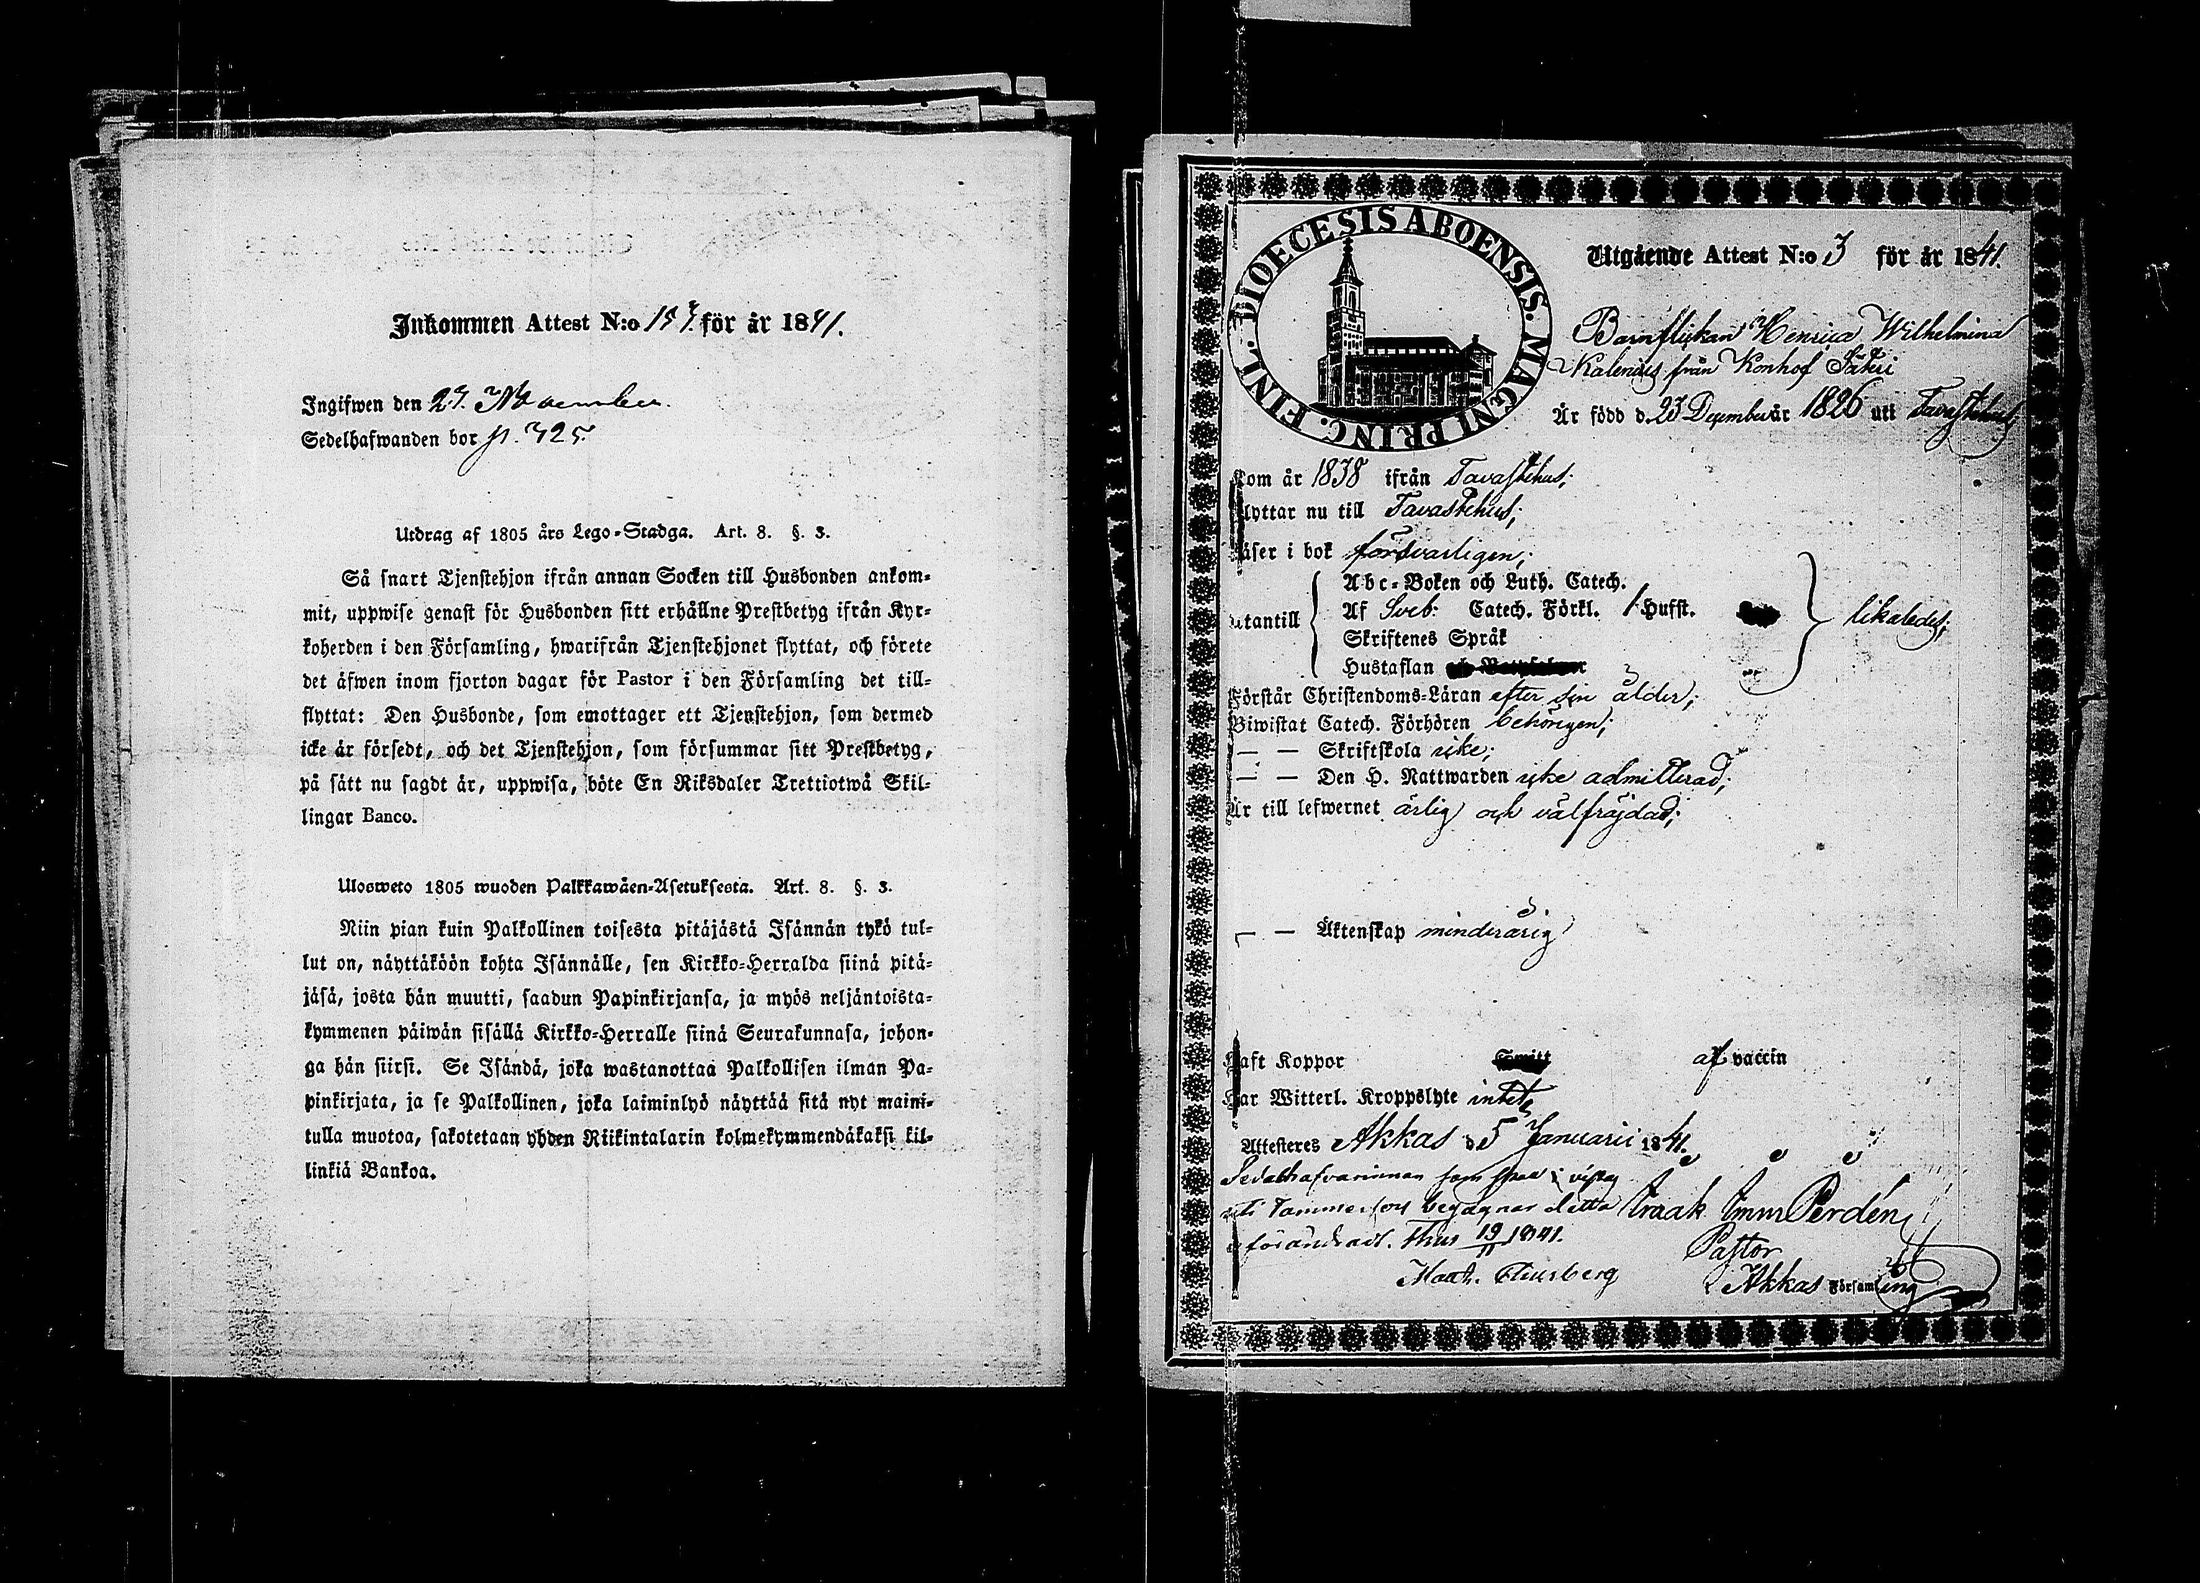 Inkommen Attest N:o 153 för år 1841.
Ingifwen den 27. November.
Sedelhafwanden bor p. 325.
Utdrag af 1805 års Lego-Stadga. Art. 8. §. 3.
Så snart Tjenstehjon ifrån annan Socken till Husbonden ankom-
mit, uppwise genast för Husbonden sitt erhållne Prestbetyg ifrån Kyr-
koherden i den Församling, hwarifrån Tjenstehjonet flyttat, och förete
det äfwen inom fjorton dagar för Pastor i den Församling det till-
flyttat: Den Husbonde, som emottager ett Tjenstehjon, som dermed
icke är försedt, och det Tjenstehjon, som försummar sitt Prestbetyg,
på sätt nu sagdt är, uppwisa, böte En Riksdaler Trettiotwå Skil-
lingar Banco.
Ulosweto 1805 wuoden Palkkawäen-Asetuksesta. Art. 8. §. 3.
Niin pian kuin Palkollinen toisesta pitäjästä Isännän tykö tul-
lut on, näyttäköön kohta Isännälle, sen Kirkko-Herralda siinä pitä-
jäsä, josta hän muutti, saadun Papinkirjansa, ja myös neljäntoista-
kymmenen päiwän sisällä Kirkko-Herralle siinä Seurakunnasa, johon-
ga hän siirsi. Se Isändä, joka wastanottaa Palkollisen ilman Pa-
pinkirjata, ja se Palkollinen, joka laiminlyö näyttää sitä nyt maini-
tulla muotoa, sakotetaan yhden Riikintalarin kolmekymmendäkaksi kil-
linkiä Bankoa.
DIOECESIS ABOENSIS. MAGNI PRINC. FINL.
Utgående Attest N:o 3 för år 1841.
Barnflickan Henrica Wilhelmina
Kalenius från Konhof Säteri
Är född d. 23 December år 1826 uti Tavastehus,
Kom år 1838 ifrån Tavastehus;
flyttar nu till Tavastehus;
Läser i bok försvarligen;
Abc-Boken och Luth. Catech.
utantill Af Sveb: Catech. Förkl. / Husst. likaledes;
Skriftenes Språk
Hustaflan
Förstår Christendoms-Läran efter sin ålder;
Biwistat Catech. Förhören behörigen;
— — Skriftskola icke;
— — Den H. Nattwarden icke admitterad;
Är till lefwernet ärlig och välfräjdad;
— — Äktenskap minderårig
Haft Koppor af vaccin
Har Witterl. Kroppslyte intet
Attesteres Akkas d 5 Januarii 1841.
Sedelhafvarinnan som vistas
uti Tammerfors begagnar detta Isaak Imm Perdén
oförändradt. Thus 19/11 1841. Pastor
Akkas Församling